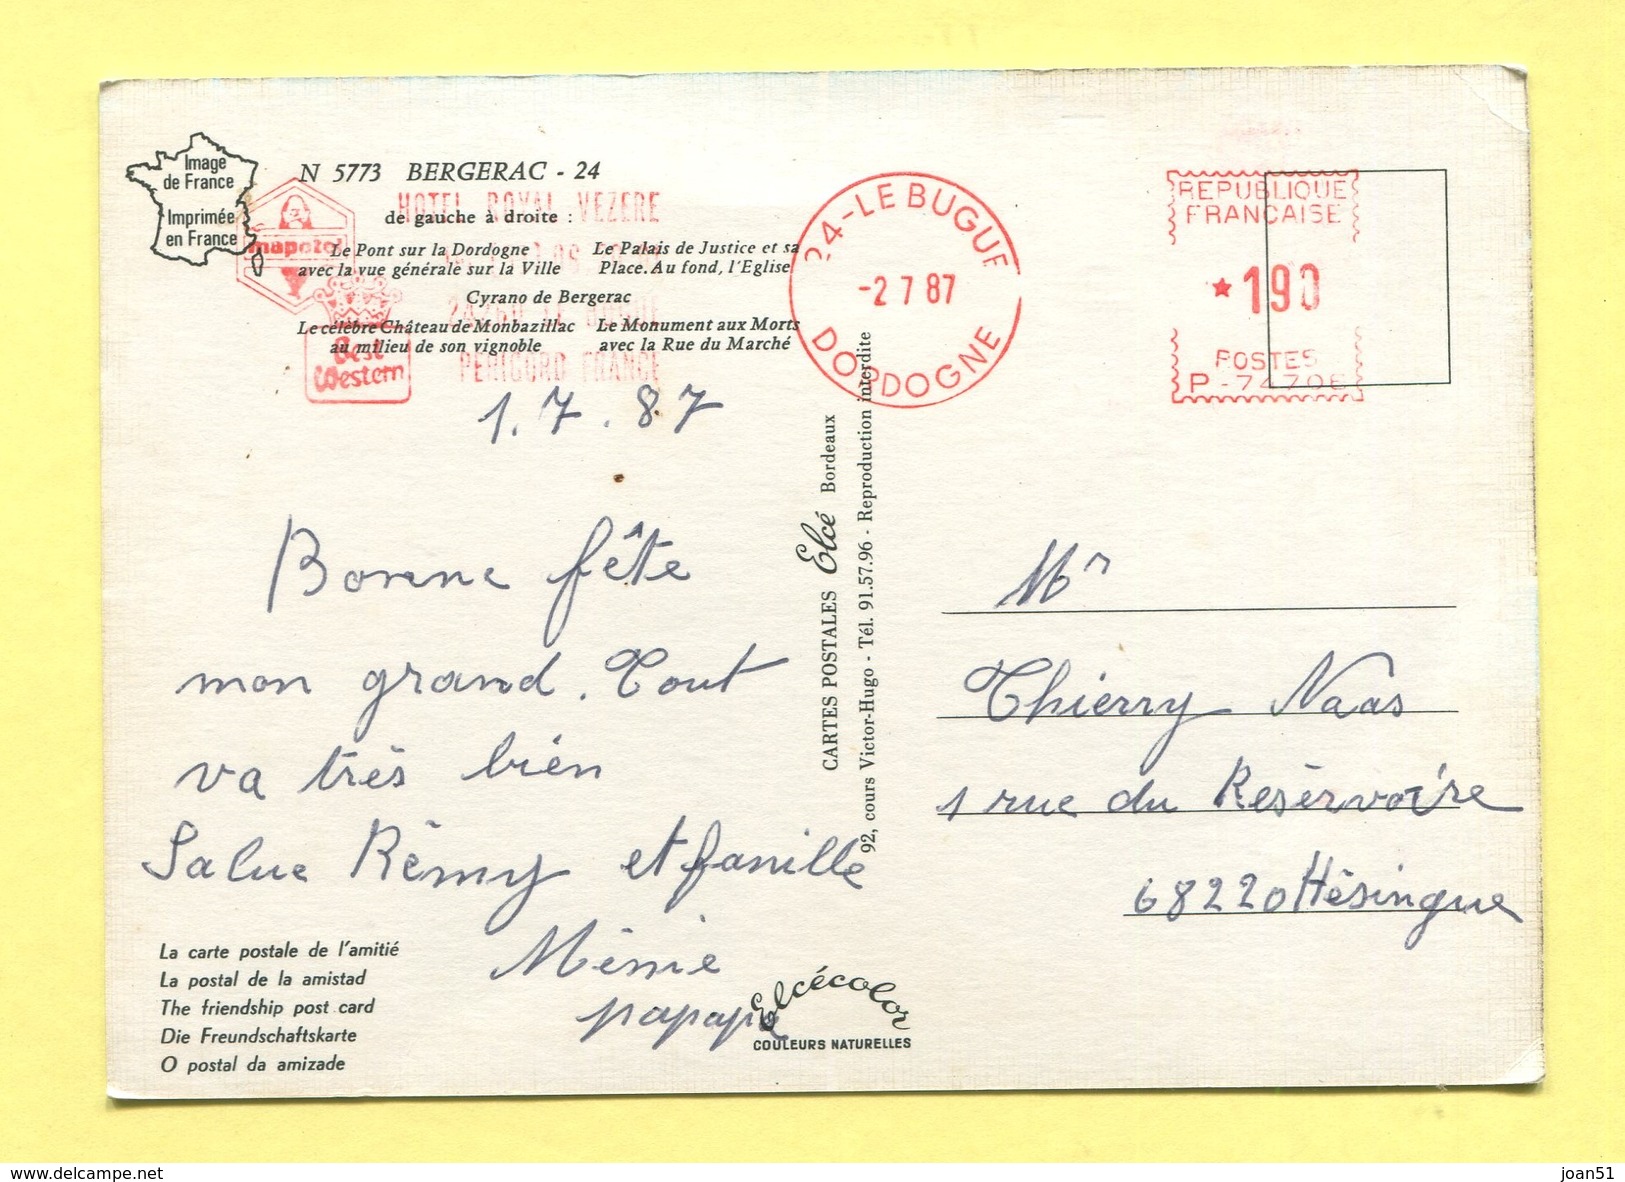 Image
de France
Imprimée
en France
N 5773 BERGERAC - 24
HOTEL ROYAL VEZERE
de gauche à droite :
mapotel
Le Pont sur la Dordogne
avec la vue générale sur la Ville
Le Palais de Justice et sa
Place. Au fond, l'Eglise
Cyrano de Bergerac
24260 LE BUGUE
Le célèbre Château de Monbazillac
au milieu de son vignoble
Le Monument aux Morts
avec la Rue du Marché
Best
Western
PERIGORD FRANCE
24-LE BUGUE
-2 7 87
DORDOGNE
REPUBLIQUE
FRANCAISE
190
POSTES
P-74706
1.7.87
Bonne fête
mon grand. Tout
va très bien
Salue Rémy et famille
Mémie
papapa
La carte postale de l'amitié
La postal de la amistad
The friendship post card
Die Freundschaftskarte
O postal da amizade
CARTES POSTALES Elcé Bordeaux
92, cours Victor-Hugo - Tél. 91.57.96 - Reproduction interdite
Elcécolor
COULEURS NATURELLES
Mr
Thierry Naas
1 rue du Réservoire
68220 Hésingue
www.delcampe.net
joan51